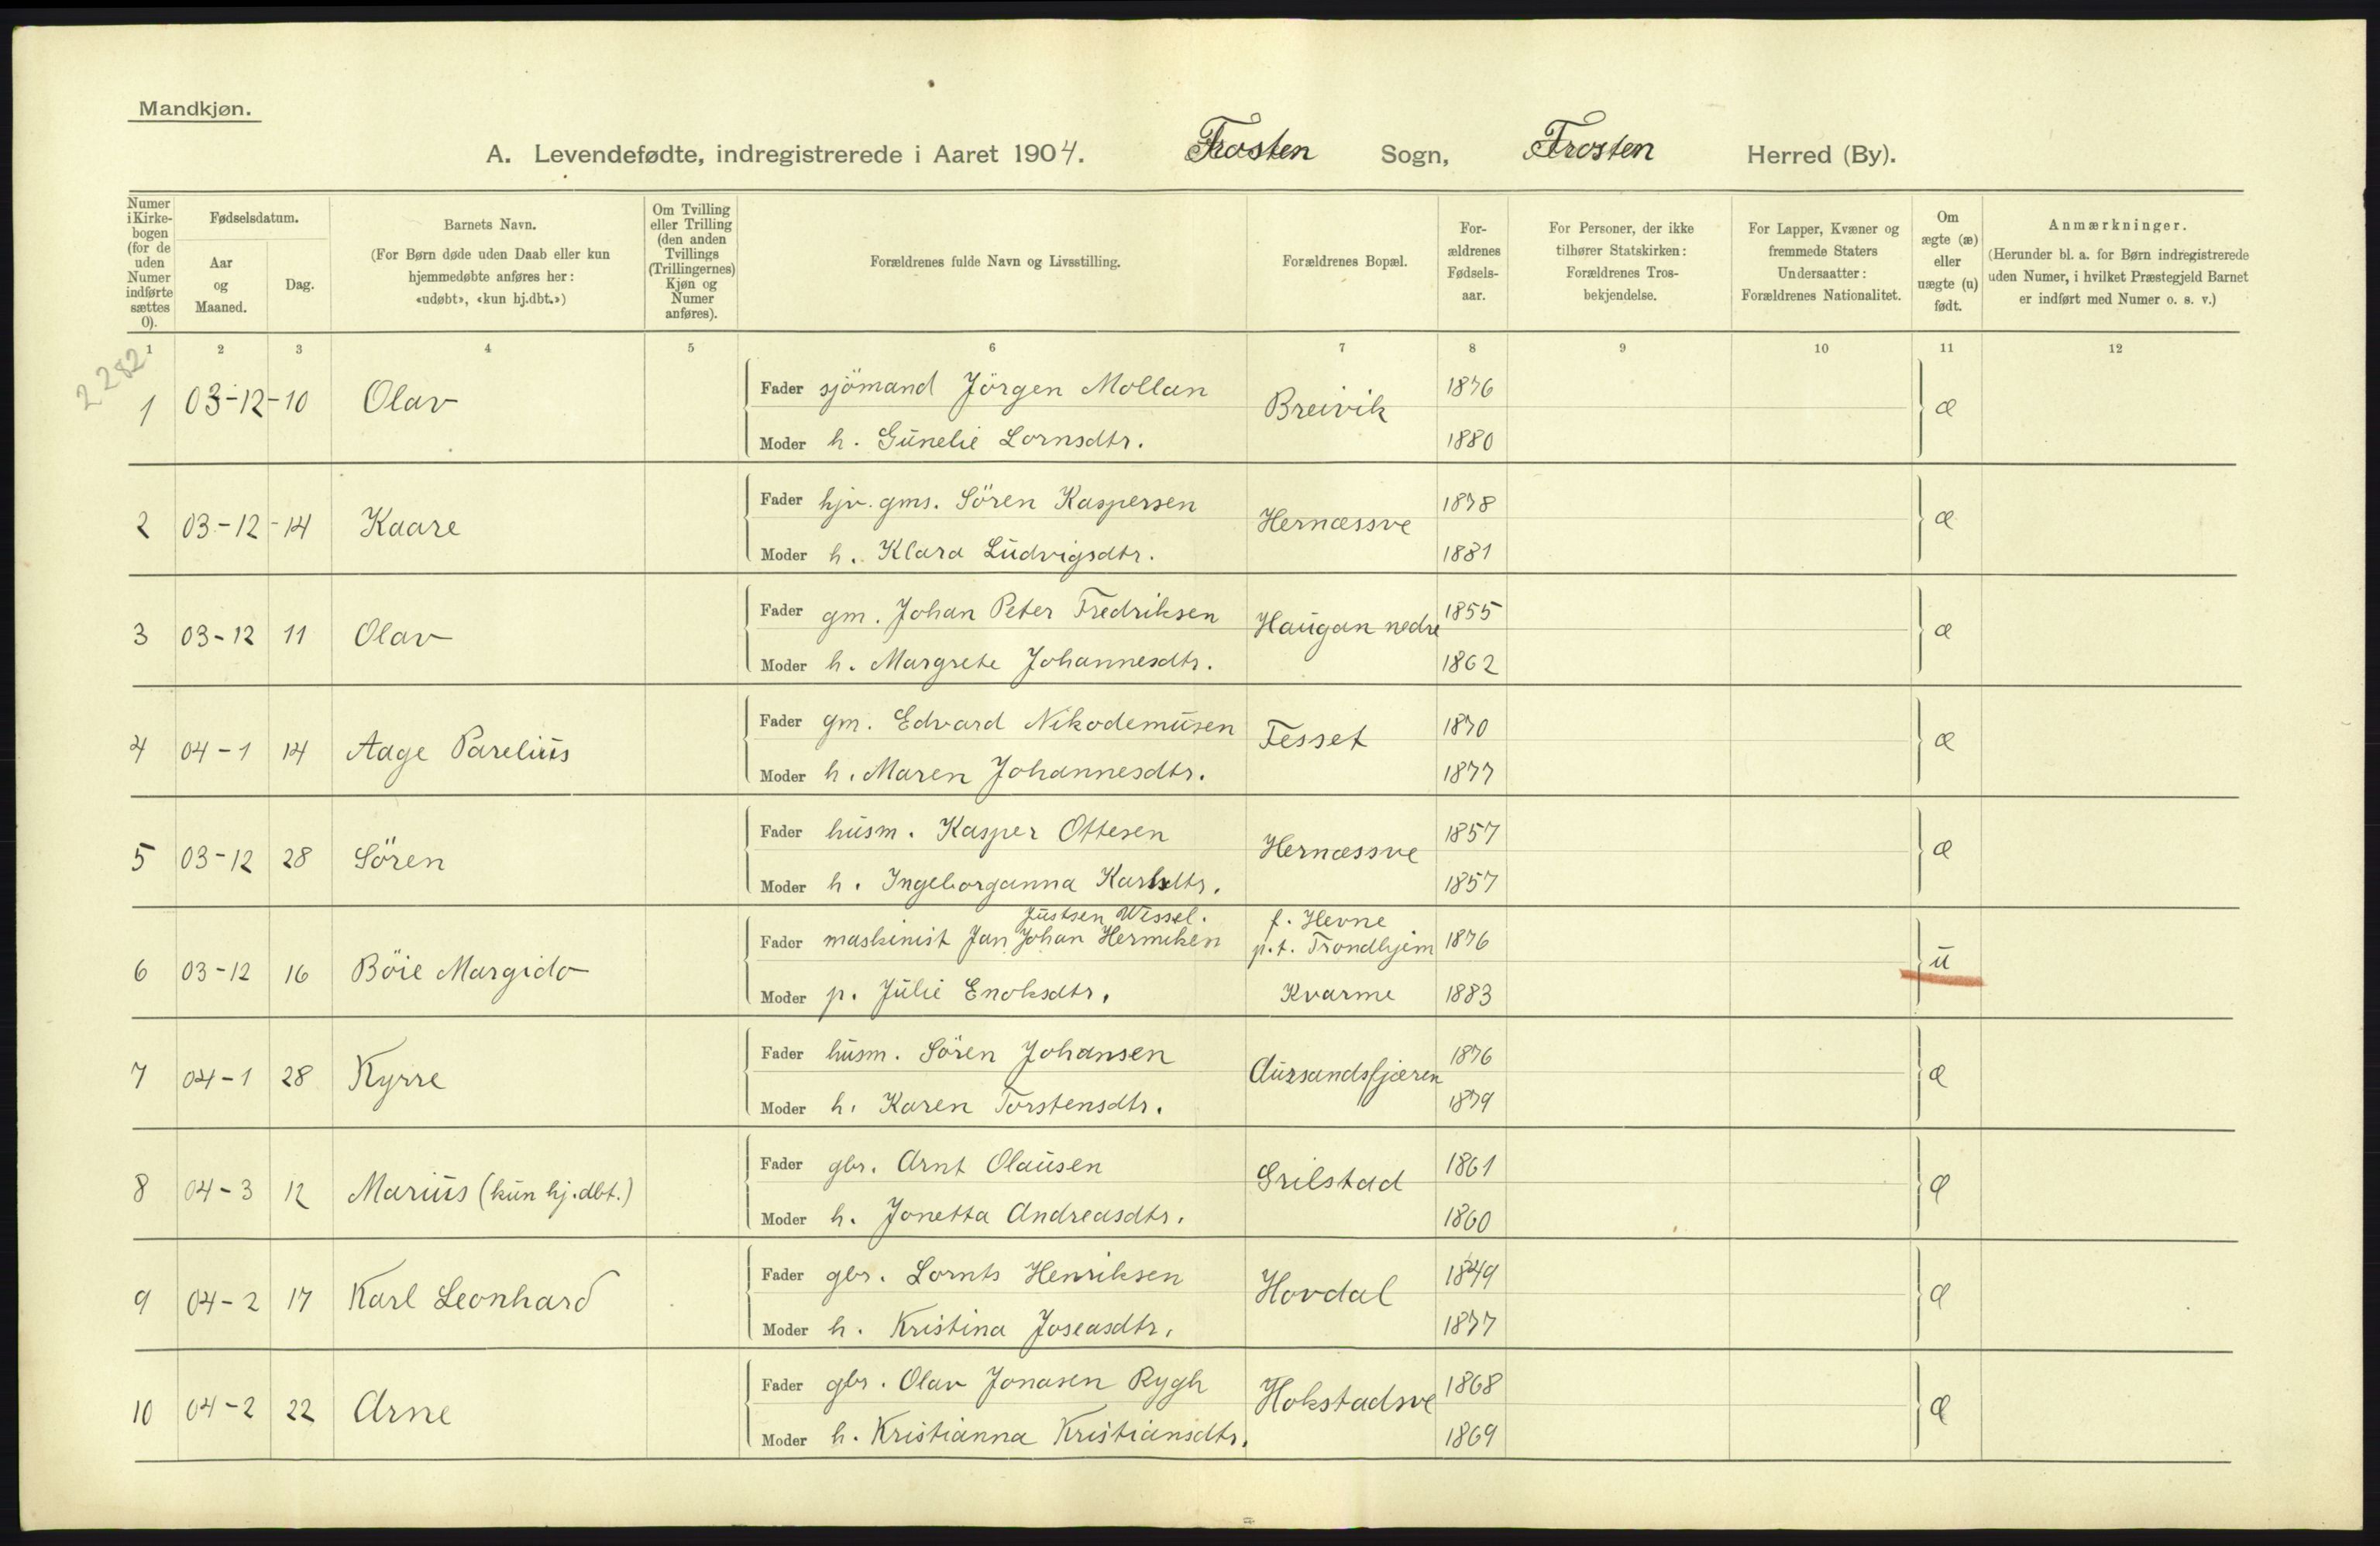 Mandkjøn.
A. Levendefødte, indregistrerede i Aaret 1904. Frosten Sogn, Frosten Herred (By).
Numer i Kirkebogen (for de uden Numer indførte sættes 0).
Fødselsdatum.
Aar og Maaned.
Dag.
Barnets Navn.
(For Børn døde uden Daab eller kun hjemmedøbte anføres her: «udøbt», «kun hj.dbt.»)
Om Tvilling eller Trilling (den anden Tvillings (Trillingernes) Kjøn og Numer anføres).
Forældrenes fulde Navn og Livsstilling.
Forældrenes Bopæl.
Forældrenes Fødselsaar.
For Personer, der ikke tilhører Statskirken: Forældrenes Trosbekjendelse.
For Lapper, Kvæner og fremmede Staters Undersaatter: Forældrenes Nationalitet.
Om ægte (æ) eller uægte (u) født.
Anmærkninger.
(Herunder bl. a. for Børn indregistrerede uden Numer, i hvilket Præstegjeld Barnet er indført med Numer o. s. v.)
1 2 3 4 5 6 7 8 9 10 11 12
2282
1 03-12-10 Olav Fader sjömand Jörgen Mollan Breivik 1876 æ
Moder h. Gunelie Lornsdtr. 1880
2 03-12-14 Kaare Fader hjv. gms. Sören Kaspersen Hernæssve 1878 æ
Moder h. Klara Ludvigsdtr. 1881
3 03-12 11 Olav Fader gm. Johan Peter Fredriksen Haugan nedre 1855 æ
Moder h. Margrete Johannesdtr. 1862
4 04-1 14 Aage Parelius Fader gm. Edvard Nikodemusen Fesset 1870 æ
Moder h. Maren Johannesdtr. 1877
5 03-12 28 Sören Fader husm. Kasper Ottesen Hernæssve 1857 æ
Moder h. Ingeborganna Karlsdtr. 1857
Justsen Wessel. f. Hevne
6 03-12 16 Böie Margido Fader maskinist Jan Johan Hermiken p.t. Trondhjem 1876 u
Moder p. Julie Enoksdtr. Kvarme 1883
7 04-1 28 Kyrre Fader husm. Sören Johansen Aursandsfjæren 1876 æ
Moder h. Karen Torstensdtr. 1879
8 04-3 12 Marius (kun hj.dbt.) Fader gbr. Arnt Olausen Grilstad 1861 æ
Moder h. Jonetta Andreasdtr. 1860
9 04-2 17 Karl Leonhard Fader gbr. Lornts Henriksen Hovdal 1849 æ
Moder h. Kristina Joseasdtr. 1877
10 04-2 22 Arne Fader gbr. Olav Jonasen Rygh Hokstadsve 1868 æ
Moder h. Kristianna Kristiansdtr. 1869